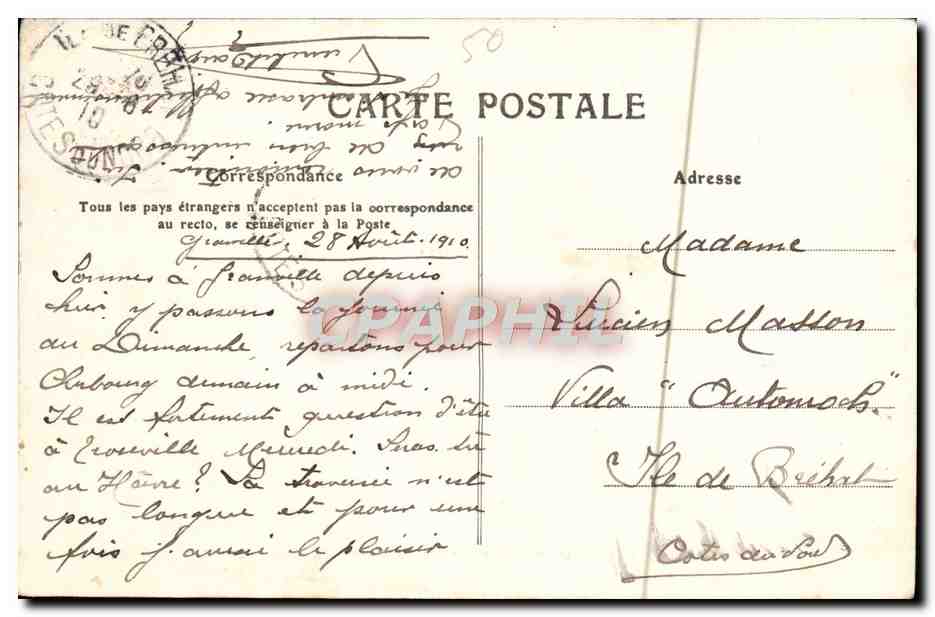 CARTE POSTALE
Correspondance
Adresse
Tous les pays étrangers n'acceptent pas la correspondance
au recto, se renseigner à la Poste
Granville, 28 Août 1910
Sommes à Granville depuis
hier y passons la journée
du Dimanche, repartons pour
Cherbourg demain à midi.
Il est fortement question d'être
à Trouville Mercredi. Seras tu
au Hâvre? La traversée n'est
pas longue et pour une
fois j'aurai le plaisir
de vous
de bien embrasser
Je t'embrasse affectueusement
Madame
Lucien Masson
Villa "Automoch."
Ile de Bréhat
Cotes du Nord
50
28 - 8
10
CPAPHIL